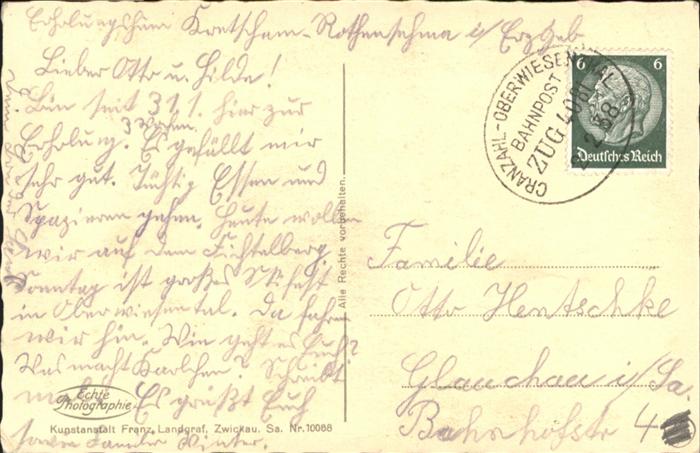 Erholungsheim Kretscham-Rothensehma i/Erzgeb
Lieber Otto u. Hilde!
Bin seit 31.1. hier zur
3 Wochen
Erholung. Es gefällt mir
sehr gut. Tüchtig Essen und
Spazieren gehen. Heute wollen
wir auf dem Fichtelberg,
Sonntag ist großes Skifest
in Oberwiesental. Da fahren
wir hin. Wie geht es Euch?
Was macht Karlchen? Schreibt
mal. Es grüßt Euch
Winter.
Echte
Photographie
Kunstanstalt Franz Landgraf, Zwickau. Sa. Nr. 10088
Alle Rechte vorbehalten.
CRANZAHL-OBERWIESENTHAL
BAHNPOST
ZUG 4081
2.38
6 6
Deutsches Reich
Familie
Otto Hentschke
Glauchau i/Sa.
Bahnhofstr 4